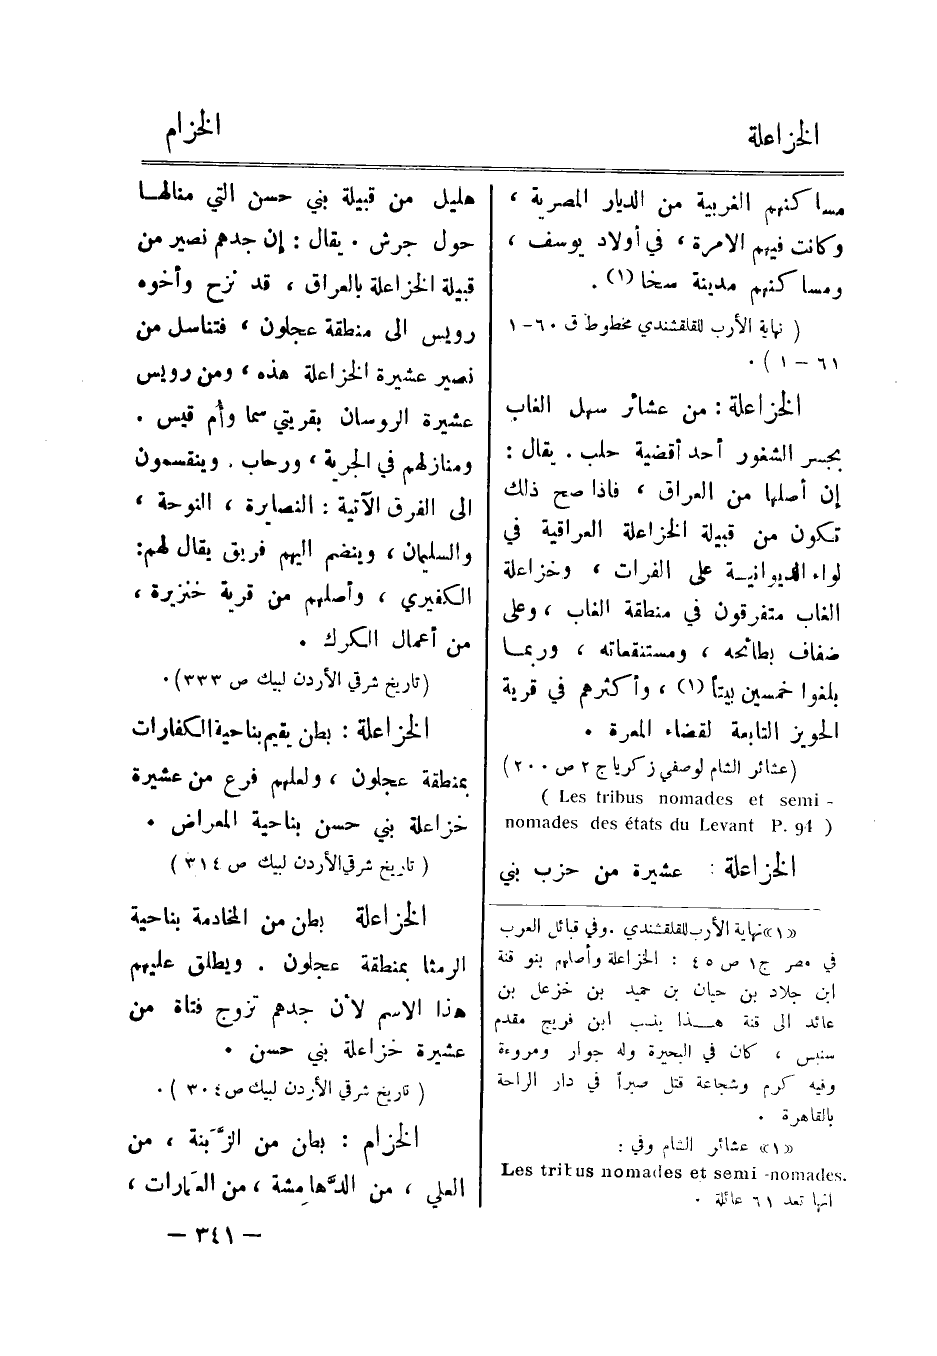 الخزاعلة
الخزام
مساكنهم الغربية من الديار المصرية ،
وكانت فيهم الامرة ، في أولاد يوسف ،
ومساكنهم مدينة سخا (١) .
( نهاية الأرب للقلقشندي مخطوط ق ٦٠ - ١
٦١ - ١ ) .
الخزاعلة : من عشائر سهل الغاب
بجسر الشغور أحد أقضية حلب . يقال :
إن أصلها من العراق ، فاذا صح ذلك
تكون من قبيلة الخزاعلة العراقية في
لواء الديوانيـة على الفرات ، وخزاعلة
الغاب متفرقون في منطقة الغاب ، وعلى
ضفاف بطائحه ، ومستنقعاته ، وربمـا
بلغوا خمسين بيتاً (١) ، وأكثرهم في قرية
الحويز التابعة لقضاء المعرة .
(عشائر الشام لوصفي زكريا ج ٢ ص ٢٠٠)
( Les tribus nomades et semi -
nomades des états du Levant P. 94 )
الخزاعلة : عشيرة من حزب بني
«١» نهاية الأرب للقلقشندي . وفي قبائل العرب
في مصر ج١ ص ٤٥ : الخزاعلة وأصلهم بنو قنة
ابن جلاد بن حيان بن حميد بن خزعل بن
عائد الى قنة هـــذا ينسب ابن فريج مقدم
سنبس ، كان في البحيرة وله جوار ومروءة
وفيه كرم وشجاعة قتل صبراً في دار الراحة
بالقاهرة .
«١» عشائر الشام وفي :
Les tribus nomades et semi -nomades.
انها تعد ٦١ عائلة .
هليل من قبيلة بني حسن التي منالهـا
حول جرش . يقال : إن جدهم نصير من
قبيلة الخزاعلة بالعراق ، قد نزح وأخوه
رويس الى منطقة عجلون ، فتناسل من
نصير عشيرة الخزاعلة هذه ، ومن رويس
عشيرة الروسان بقريتي سما وأم قيس .
ومنازلهم في الجرية ، ورحاب . وينقسمون
الى الفرق الآتية : النصايرة ، النوحة ،
والسليمان ، وينضم اليهم فريق يقال لهم:
الكفيري ، وأصلهم من قرية خنزيرة ،
من أعمال الكرك .
(تاريخ شرقي الأردن لبيك ص ٣٣٣) .
الخزاعلة : بطن يقيم بناحية الكفارات
بمنطقة عجلون ، ولعلهم فرع من عشيرة
خزاعلة بني حسن بناحية المعراض .
( تاريخ شرقي الأردن لبيك ص ٣١٤ )
الخزاعلة بطن من المخادمة بناحية
الرمثا بمنطقة عجلون . ويطلق عليهم
هذا الاسم لأن جدهم تزوج فتاة من
عشيرة خزاعلة بني حسن .
( تاريخ شرقي الأردن لبيك ص ٣٠٤ ) .
الخزام : بطن من الزَّبَنة ، من
العلي ، من الدَّهامشة ، من العمارات ،
— ٣٤١ —